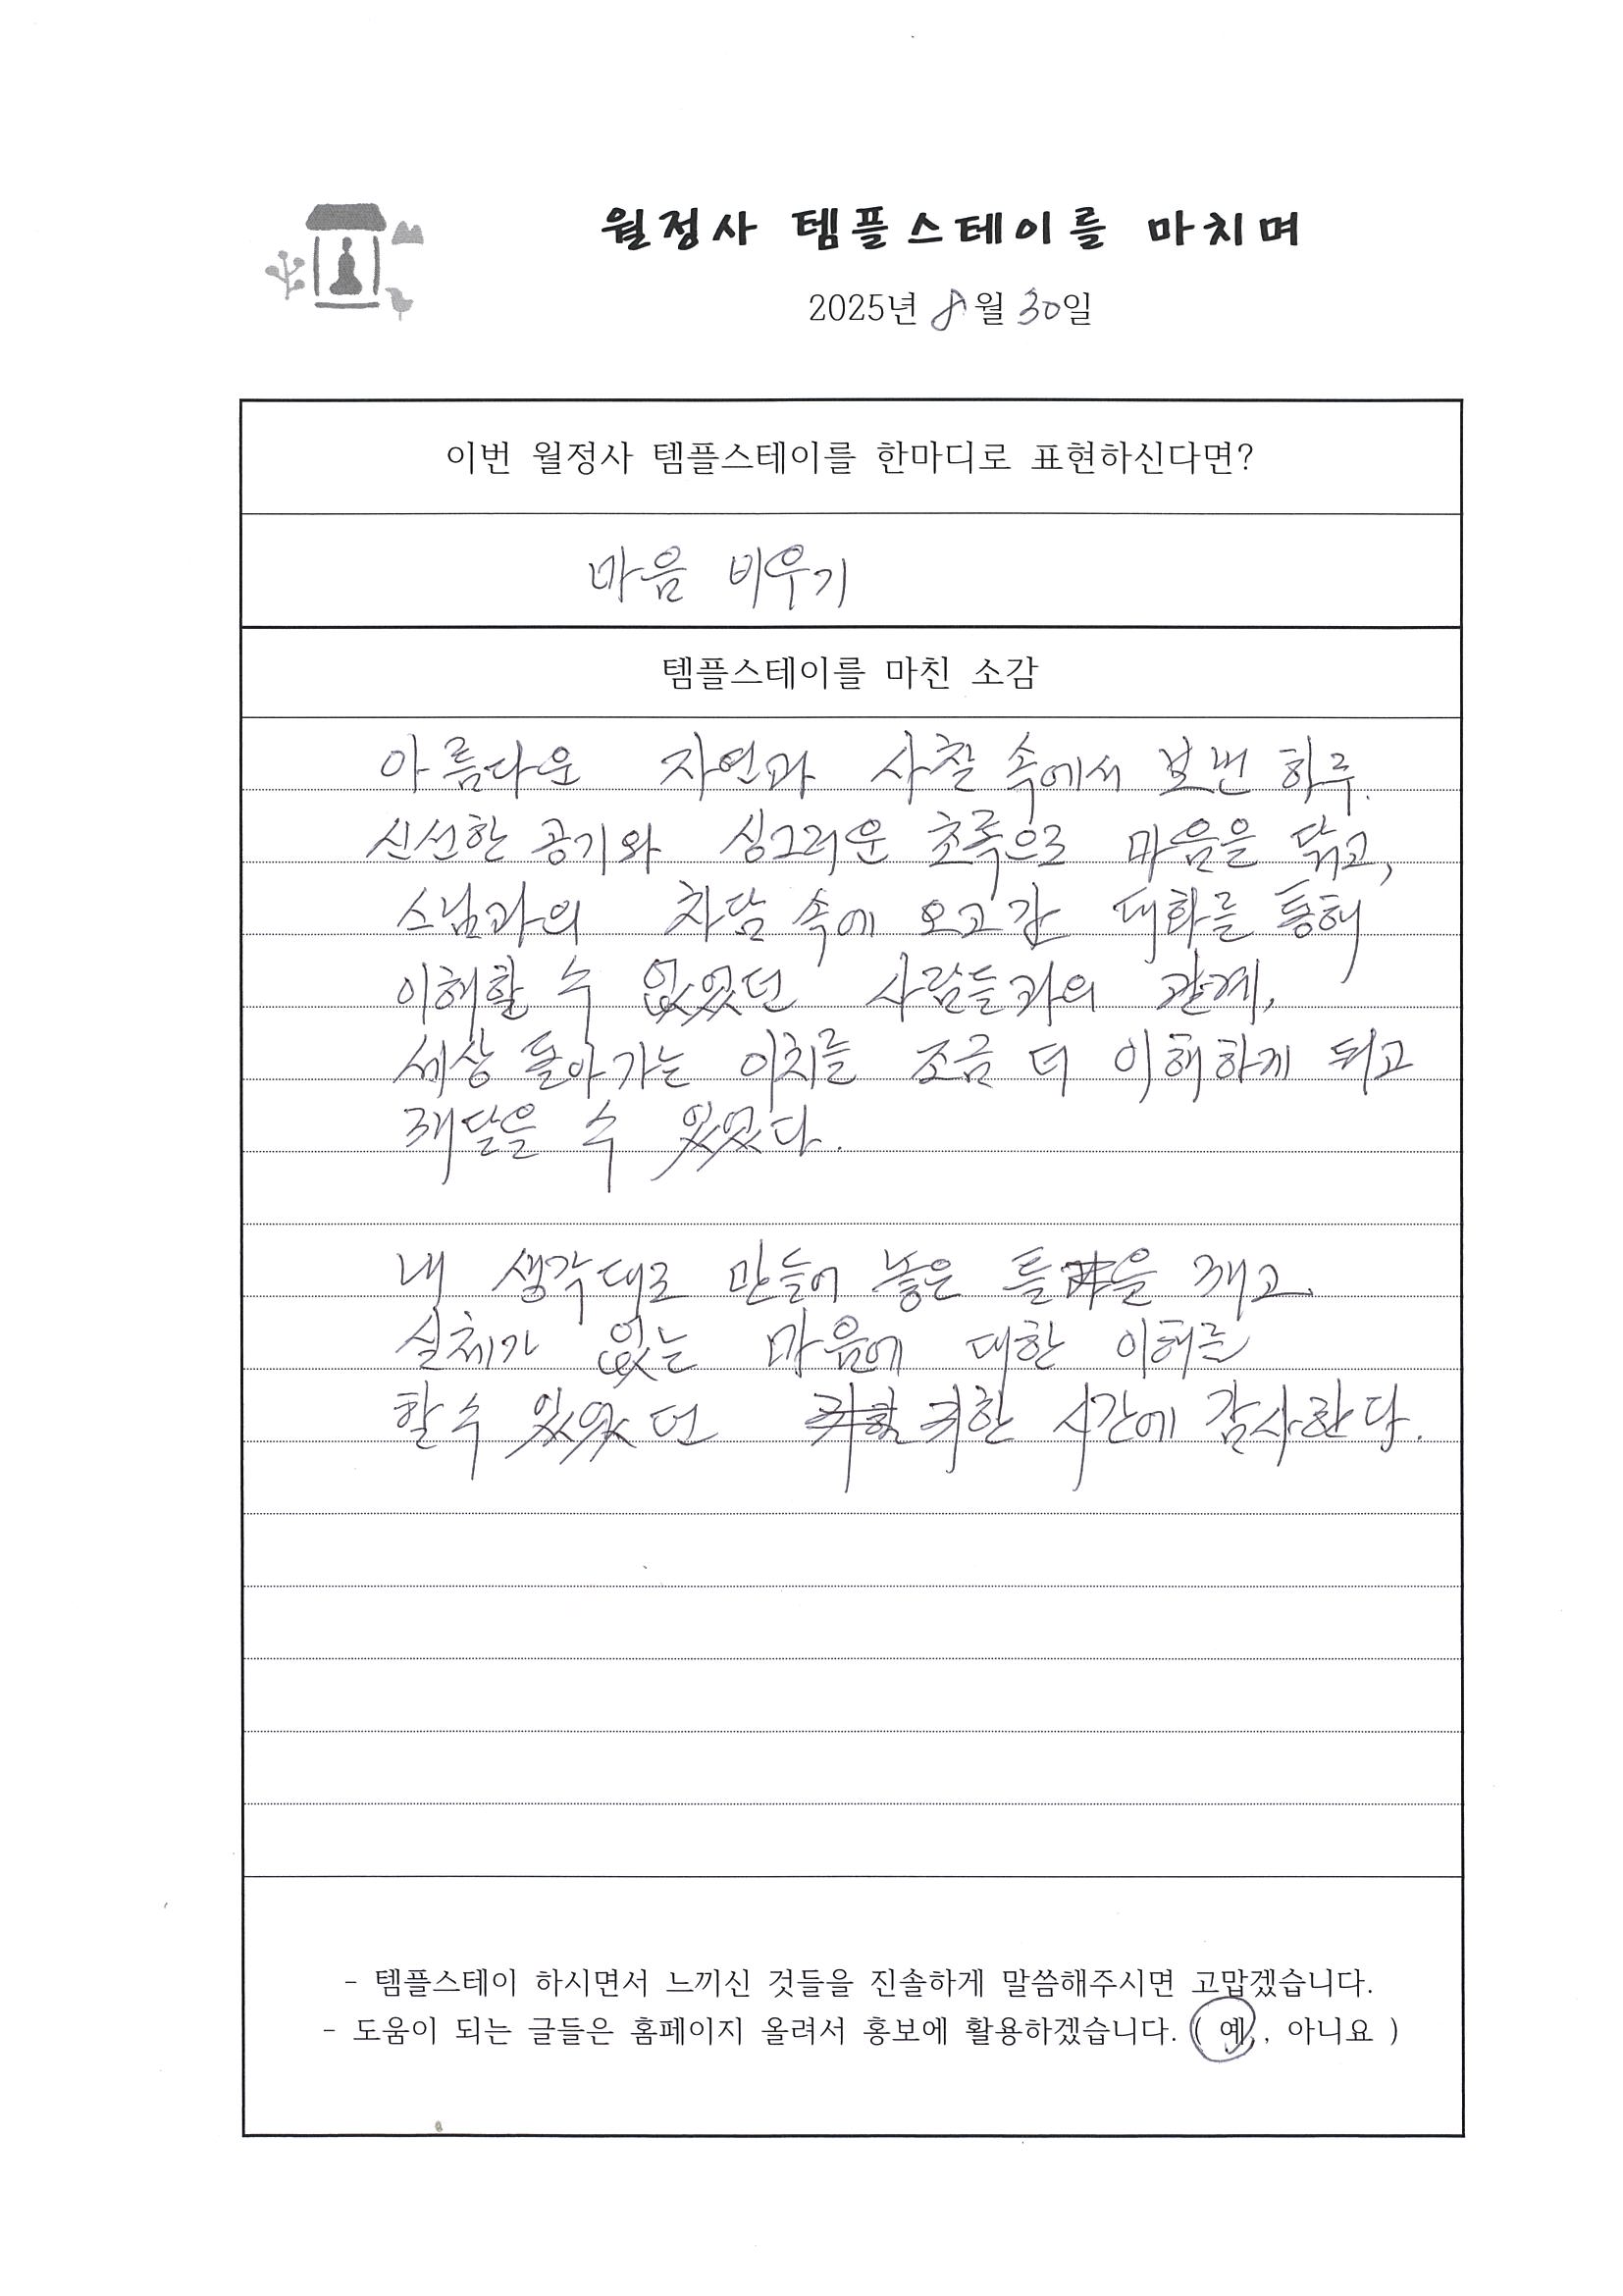 월정사 템플스테이를 마치며
2025년 8월 30일
이번 월정사 템플스테이를 한마디로 표현하신다면?
마음 비우기
템플스테이를 마친 소감
아름다운 자연과 사찰 속에서 보낸 하루.
신선한 공기와 싱그러운 초록으로 마음을 닦고,
스님과의 차담 속에 오고간 대화를 통해
이해할 수 없었던 사람들과의 관계,
세상 돌아가는 이치를 조금 더 이해하게 되고
깨달을 수 있었다.
내 생각대로 만들어 놓은 틀을 깨고
실체가 없는 마음에 대한 이해를
할 수 있었던 귀한 시간에 감사한다.
- 템플스테이 하시면서 느끼신 것들을 진솔하게 말씀해주시면 고맙겠습니다.
- 도움이 되는 글들은 홈페이지 올려서 홍보에 활용하겠습니다. ( 예 , 아니요 )